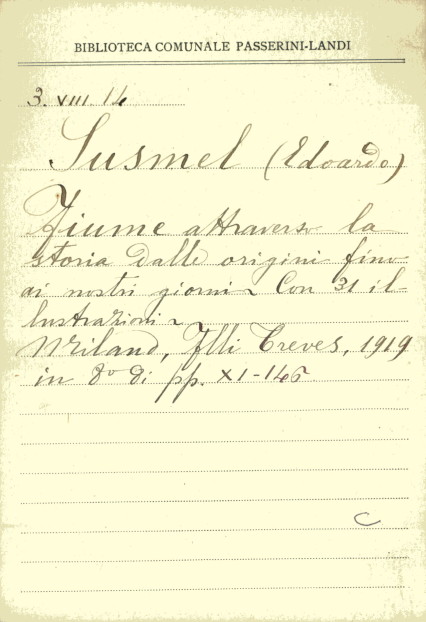 BIBLIOTECA COMUNALE PASSERINI-LANDI
3. VIII. 14
Susmel (Edoardo)
Fiume attraverso la
storia dalle origini fino
ai nostri giorni ~ Con 31 il-
lustrazioni ~
Milano, Flli Treves, 1919
in 8° di pp. XI-146
C